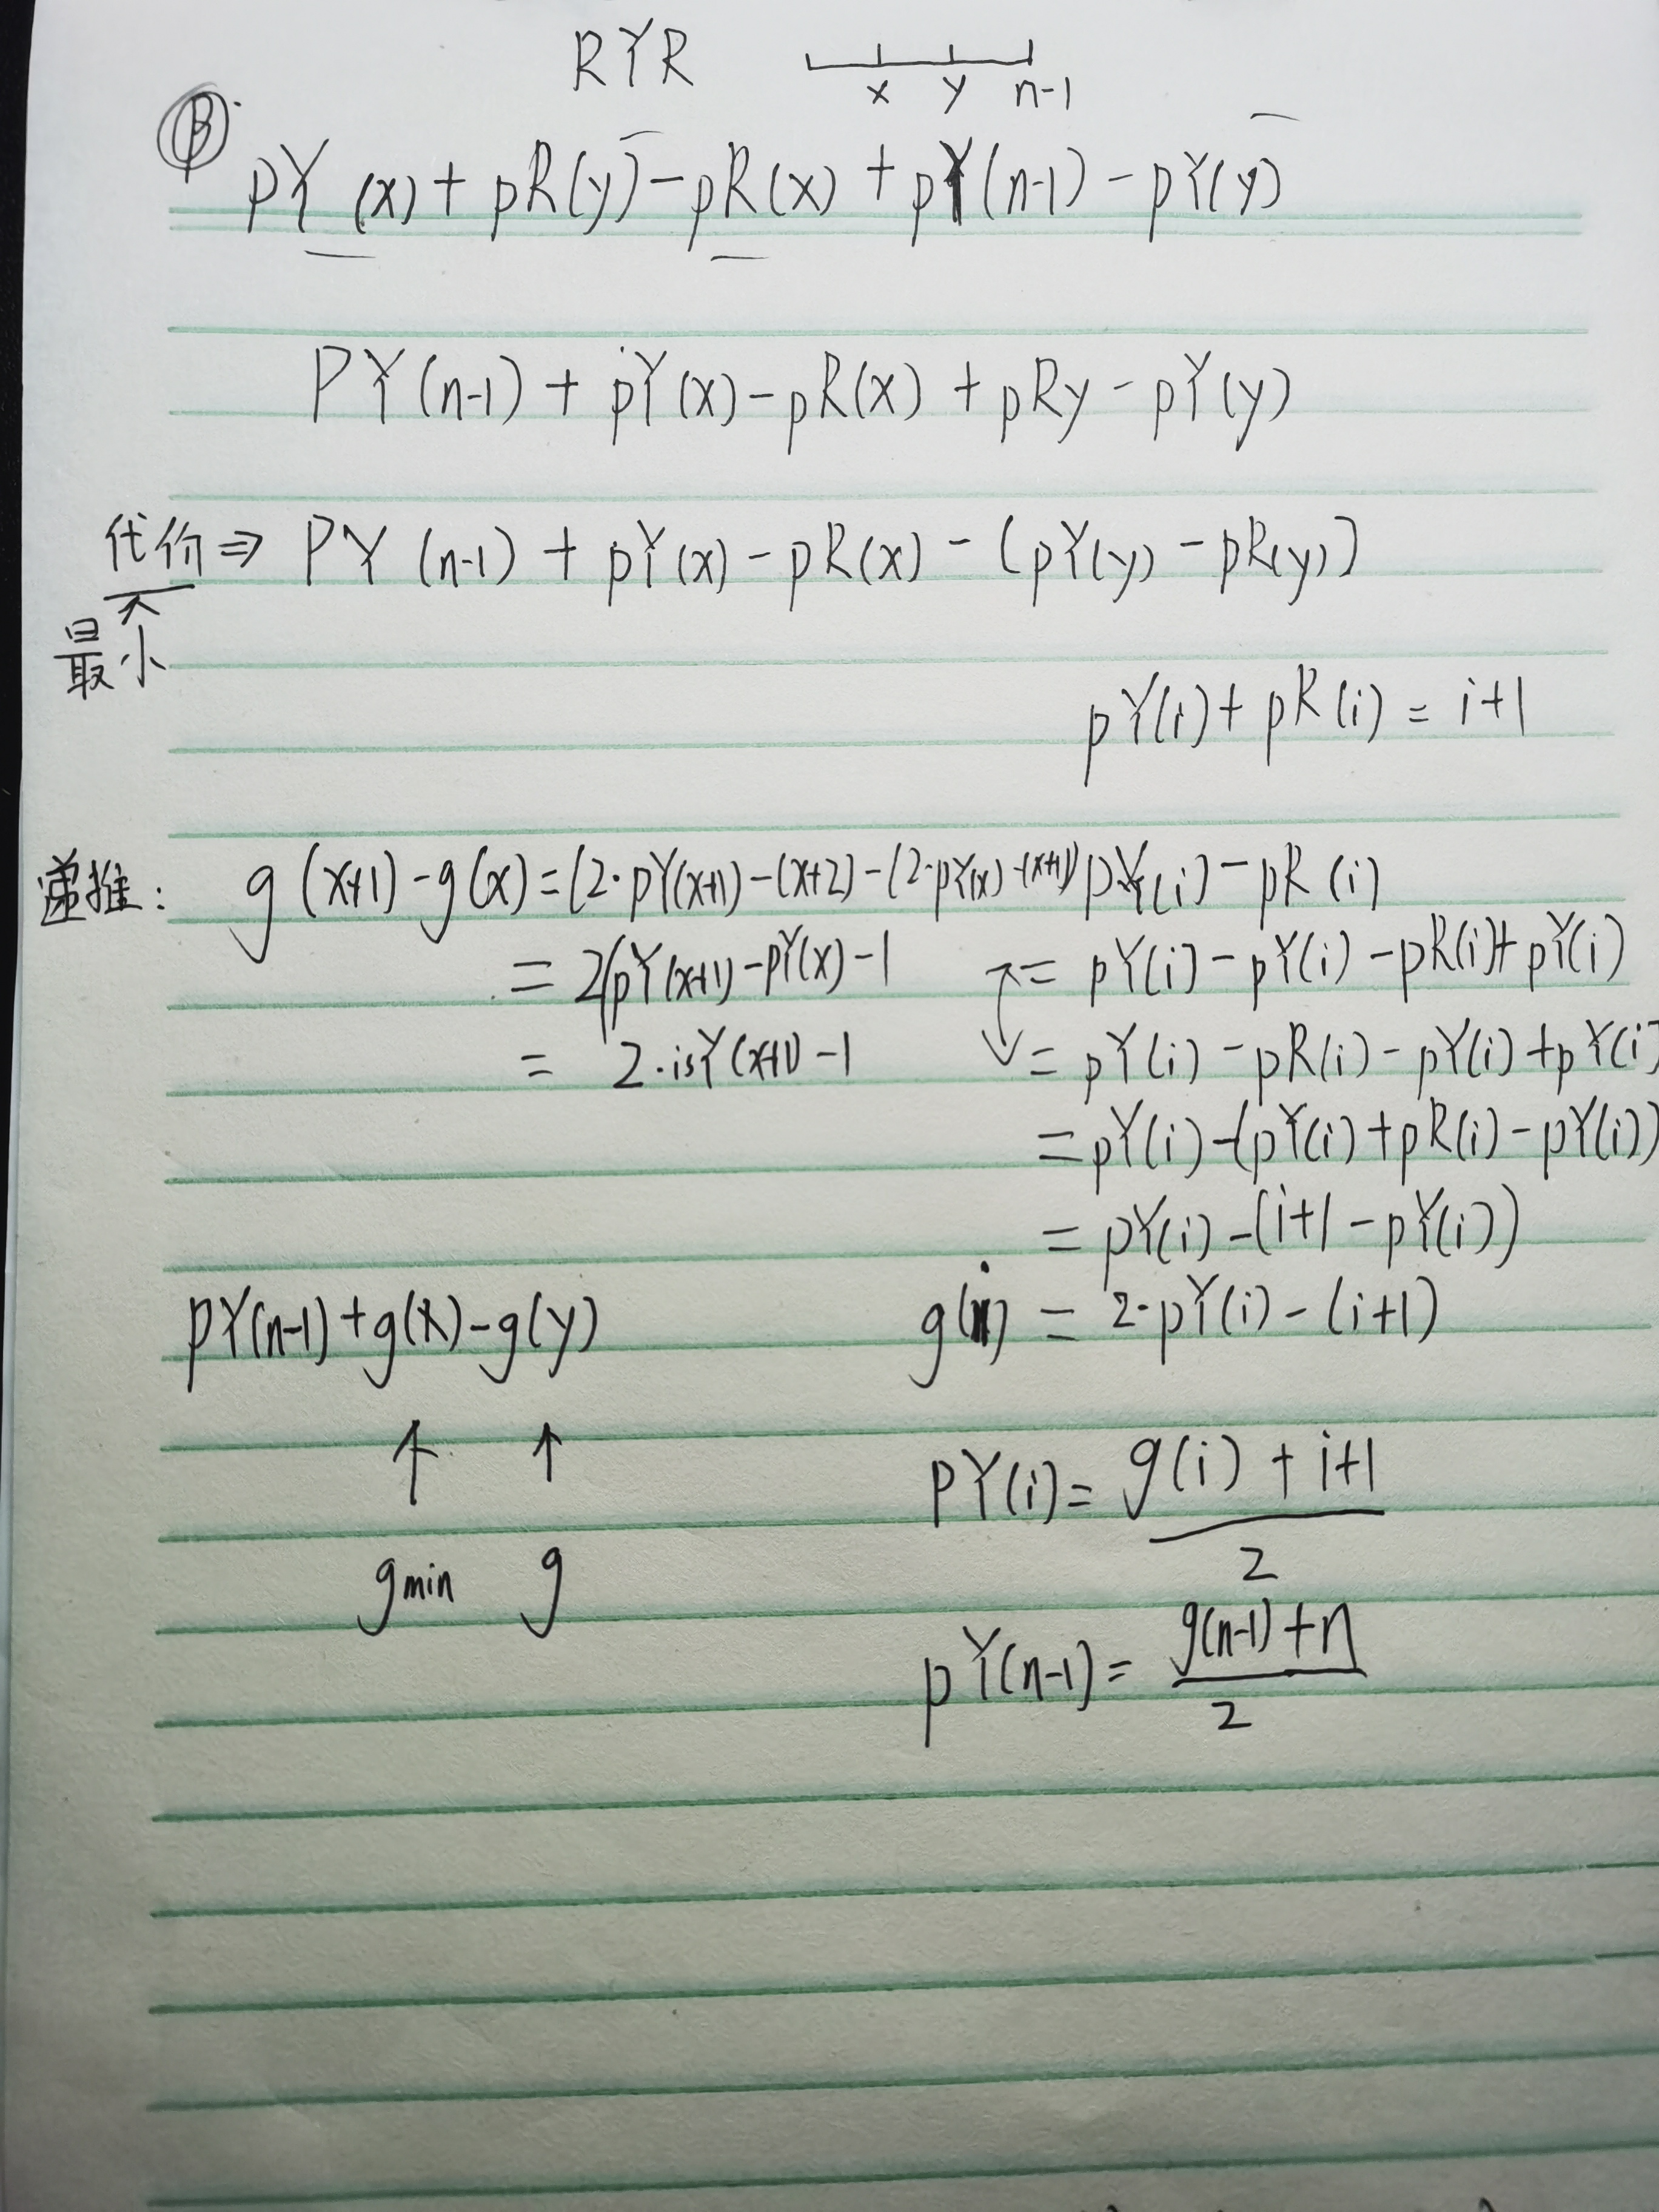 RYR
x y n-1
pY(x)+pR(y)-pR(x)+pY(n-1)-pY(y)
PY(n-1)+pY(x)-pR(x)+pRy-pY(y)
代价⇒ PY(n-1)+pY(x)-pR(x)-(pY(y)-pR(y))
最小
pY(i)+pR(i)=i+1
递推: g(x+1)-g(x)=(2·pY(x+1)-(x+2)-(2·pY(x)-(x+1))
=2(pY(x+1)-pY(x)-1
= 2·isY(x+1)-1
pY(i)-pR(i)
=pY(i)-pY(i)-pR(i)+pY(i)
=pY(i)-pR(i)-pY(i)+pY(i)
=pY(i)-(pY(i)+pR(i)-pY(i))
=pY(i)-(i+1-pY(i))
g(i)=2·pY(i)-(i+1)
pY(n-1)+g(x)-g(y)
↑ ↑
gmin g
PY(i)=g(i)+i+1
2
pY(n-1)=g(n-1)+n
2